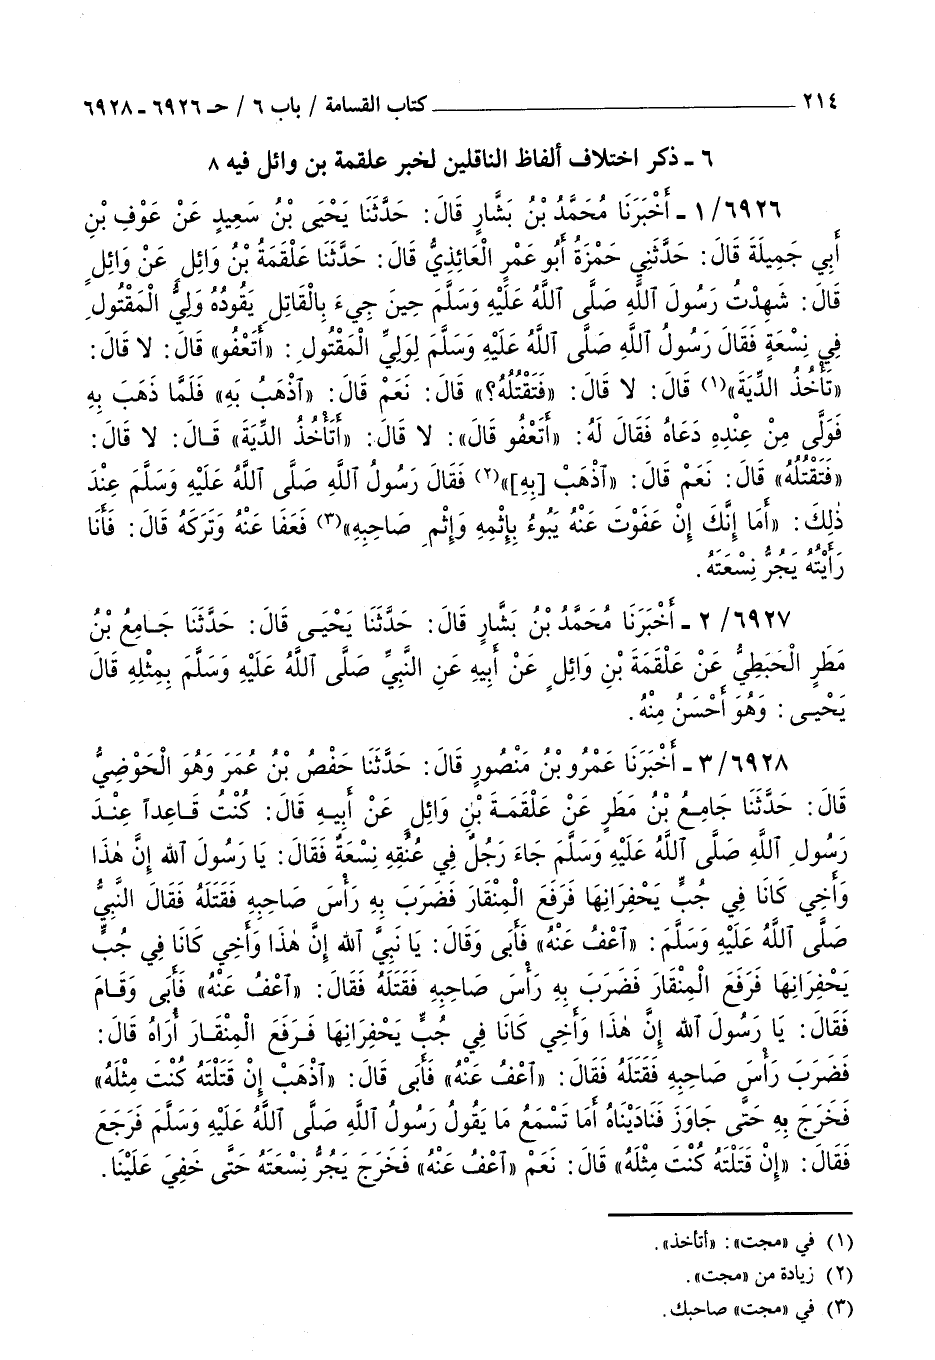 ٢١٤ ــــــــ كتاب القسامة / باب ٦ / حـ ٦٩٢٦ ـ ٦٩٢٨
٦ ـ ذكر اختلاف ألفاظ الناقلين لخبر علقمة بن وائل فيه ٨
٦٩٢٦/ ١ ـ أَخْبَرَنَا مُحَمَّدُ بْنُ بَشَّارٍ قَالَ: حَدَّثَنَا يَحْيَى بْنُ سَعِيدٍ عَنْ عَوْفِ بْنِ
أَبِي جَمِيلَةَ قَالَ: حَدَّثَنِي حَمْزَةُ أَبُو عَمْرٍ الْعَائِذِيُّ قَالَ: حَدَّثَنَا عَلْقَمَةُ بْنُ وَائِلٍ عَنْ وَائِلٍ
قَالَ: شَهِدْتُ رَسُولَ اللَّهِ صَلَّى اللَّهُ عَلَيْهِ وَسَلَّمَ حِينَ جِيءَ بِالْقَاتِلِ يَقُودُهُ وَلِيُّ الْمَقْتُولِ
فِي نِسْعَةٍ فَقَالَ رَسُولُ اللَّهِ صَلَّى اللَّهُ عَلَيْهِ وَسَلَّمَ لِوَلِيِّ الْمَقْتُولِ: «أَتَعْفُو» قَالَ: لا قَالَ:
«تَأْخُذُ الدِّيَةَ»(١) قَالَ: لا قَالَ: «فَتَقْتُلُهُ؟» قَالَ: نَعَمْ قَالَ: «اذْهَبْ بِهِ» فَلَمَّا ذَهَبَ بِهِ
فَوَلَّى مِنْ عِنْدِهِ دَعَاهُ فَقَالَ لَهُ: «أَتَعْفُو قَالَ»: لا قَالَ: «أَتَأْخُذُ الدِّيَةَ» قَالَ: لا قَالَ:
«فَتَقْتُلُهُ» قَالَ: نَعَمْ قَالَ: «اذْهَبْ [بِهِ]»(٢) فَقَالَ رَسُولُ اللَّهِ صَلَّى اللَّهُ عَلَيْهِ وَسَلَّمَ عِنْدَ
ذٰلِكَ: «أَمَا إِنَّكَ إِنْ عَفَوْتَ عَنْهُ يَبُوءُ بِإِثْمِهِ وَإِثْمِ صَاحِبِهِ»(٣) فَعَفَا عَنْهُ وَتَرَكَهُ قَالَ: فَأَنَا
رَأَيْتُهُ يَجُرُّ نِسْعَتَهُ.
٦٩٢٧/ ٢ ـ أَخْبَرَنَا مُحَمَّدُ بْنُ بَشَّارٍ قَالَ: حَدَّثَنَا يَحْيَى قَالَ: حَدَّثَنَا جَامِعُ بْنُ
مَطَرٍ الْحَبَطِيُّ عَنْ عَلْقَمَةَ بْنِ وَائِلٍ عَنْ أَبِيهِ عَنِ النَّبِيِّ صَلَّى اللَّهُ عَلَيْهِ وَسَلَّمَ بِمِثْلِهِ قَالَ
يَحْيَى: وَهُوَ أَحْسَنُ مِنْهُ.
٦٩٢٨/ ٣ ـ أَخْبَرَنَا عَمْرُو بْنُ مَنْصُورٍ قَالَ: حَدَّثَنَا حَفْصُ بْنُ عُمَرَ وَهُوَ الْحَوْضِيُّ
قَالَ: حَدَّثَنَا جَامِعُ بْنُ مَطَرٍ عَنْ عَلْقَمَةَ بْنِ وَائِلٍ عَنْ أَبِيهِ قَالَ: كُنْتُ قَاعِداً عِنْدَ
رَسُولِ اللَّهِ صَلَّى اللَّهُ عَلَيْهِ وَسَلَّمَ جَاءَ رَجُلٌ فِي عُنُقِهِ نِسْعَةٌ فَقَالَ: يَا رَسُولَ الله إِنَّ هٰذَا
وَأَخِي كَانَا فِي جُبٍّ يَحْفِرَانِهَا فَرَفَعَ الْمِنْقَارَ فَضَرَبَ بِهِ رَأْسَ صَاحِبِهِ فَقَتَلَهُ فَقَالَ النَّبِيُّ
صَلَّى اللَّهُ عَلَيْهِ وَسَلَّمَ: «اعْفُ عَنْهُ» فَأَبَى وَقَالَ: يَا نَبِيَّ الله إِنَّ هٰذَا وَأَخِي كَانَا فِي جُبٍّ
يَحْفِرَانِهَا فَرَفَعَ الْمِنْقَارَ فَضَرَبَ بِهِ رَأْسَ صَاحِبِهِ فَقَتَلَهُ فَقَالَ: «اعْفُ عَنْهُ» فَأَبَى وَقَامَ
فَقَالَ: يَا رَسُولَ الله إِنَّ هٰذَا وَأَخِي كَانَا فِي جُبٍّ يَحْفِرَانِهَا فَرَفَعَ الْمِنْقَارَ أُرَاهُ قَالَ:
فَضَرَبَ رَأْسَ صَاحِبِهِ فَقَتَلَهُ فَقَالَ: «اعْفُ عَنْهُ» فَأَبَى قَالَ: «اذْهَبْ إِنْ قَتَلْتَهُ كُنْتَ مِثْلَهُ»
فَخَرَجَ بِهِ حَتَّى جَاوَزَ فَنَادَيْنَاهُ أَمَا تَسْمَعُ مَا يَقُولُ رَسُولُ اللَّهِ صَلَّى اللَّهُ عَلَيْهِ وَسَلَّمَ فَرَجَعَ
فَقَالَ: «إِنْ قَتَلْتَهُ كُنْتَ مِثْلَهُ» قَالَ: نَعَمْ «اعْفُ عَنْهُ» فَخَرَجَ يَجُرُّ نِسْعَتَهُ حَتَّى خَفِيَ عَلَيْنَا.
(١) في «مجت»: «أتأخذ».
(٢) زيادة من «مجت».
(٣) في «مجت» صاحبك.